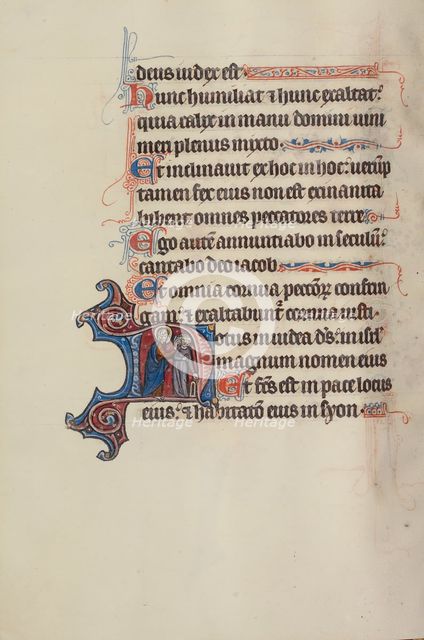 deus iudex est.
hunc humiliat et hunc exaltat:
quia calix in manu domini uini
meri plenus mixto.
Et inclinauit ex hoc in hoc: uerūp
tamen fex eius non est exinanita
bibent omnes peccatores terre.
Ego autē annuntiabo in seculum:
cantabo deo iacob.
Et omnia cornua peccōꝝ confrin
gam: & exaltabunt̄ cornua iusti.
Notus in iudea ds: in isrl
magnum nomen eius
Et fcs est in pace locus
eius: & habitatō eius in syon.
Heritage Images
Heritage Images
Heritage Images
Heritage Images